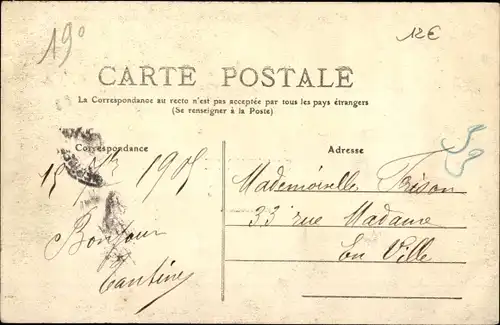 19°
12€
CARTE POSTALE
La Correspondance au recto n'est pas acceptée par tous les pays étrangers
(Se renseigner à la Poste)
Correspondance
Adresse
1905
Bonjour
Tantine
Mademoiselle Frison
33 rue Madame
En Ville